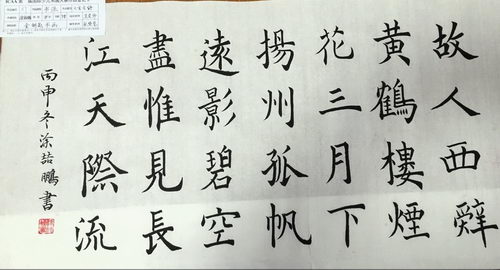 故人西辭
黄鶴樓煙
花三月下
揚州孤帆
遠影碧空
盡惟見長
江天際流
丙申冬涂喆鵬書